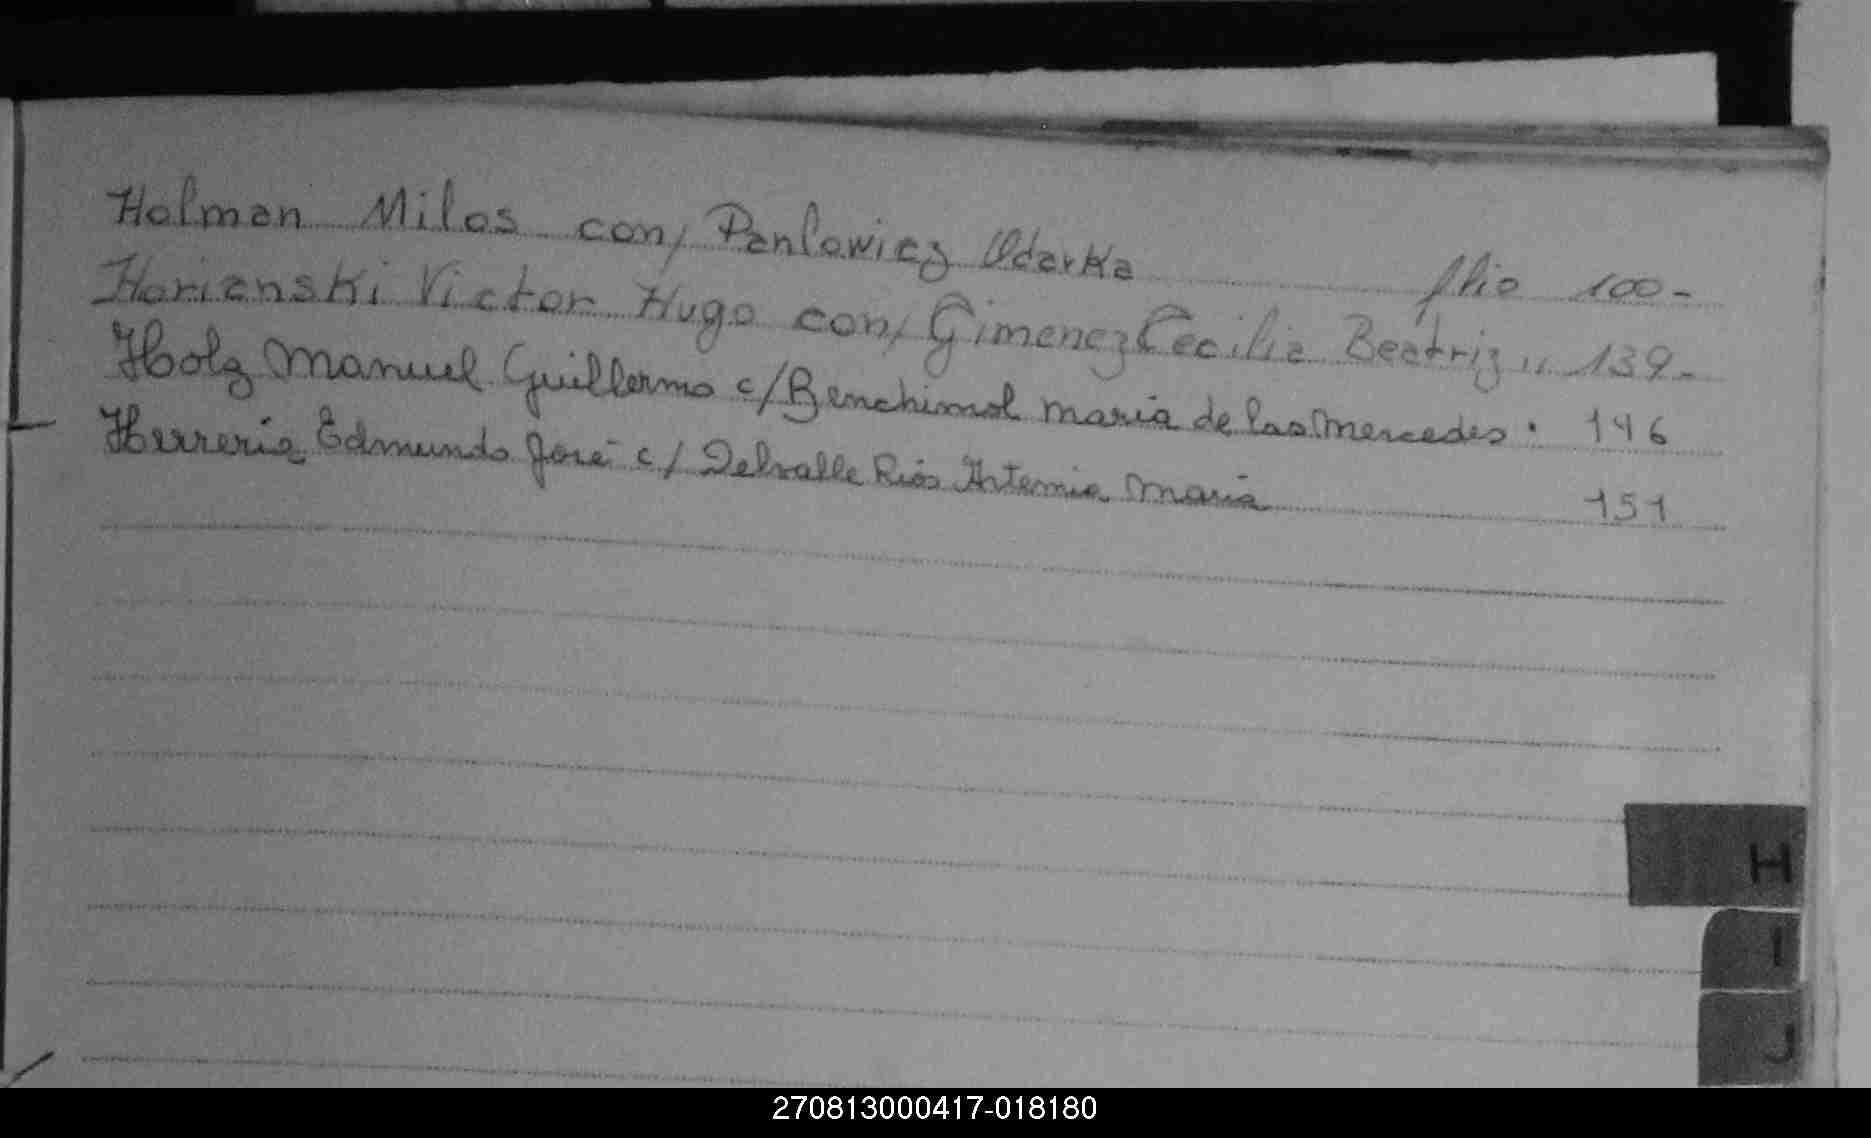 Holman Milos con/ Panlowicz Odarka flio 100-
Horianski Victor Hugo con/ Gimenez Cecilia Beatriz " 139-
Holz Manuel Guillermo c/ Benchimol Maria de las Mercedes. 146
Herreria Edmundo José c/ Delvalle Rios Artemia Maria 151
H
I
J
270813000417-018180